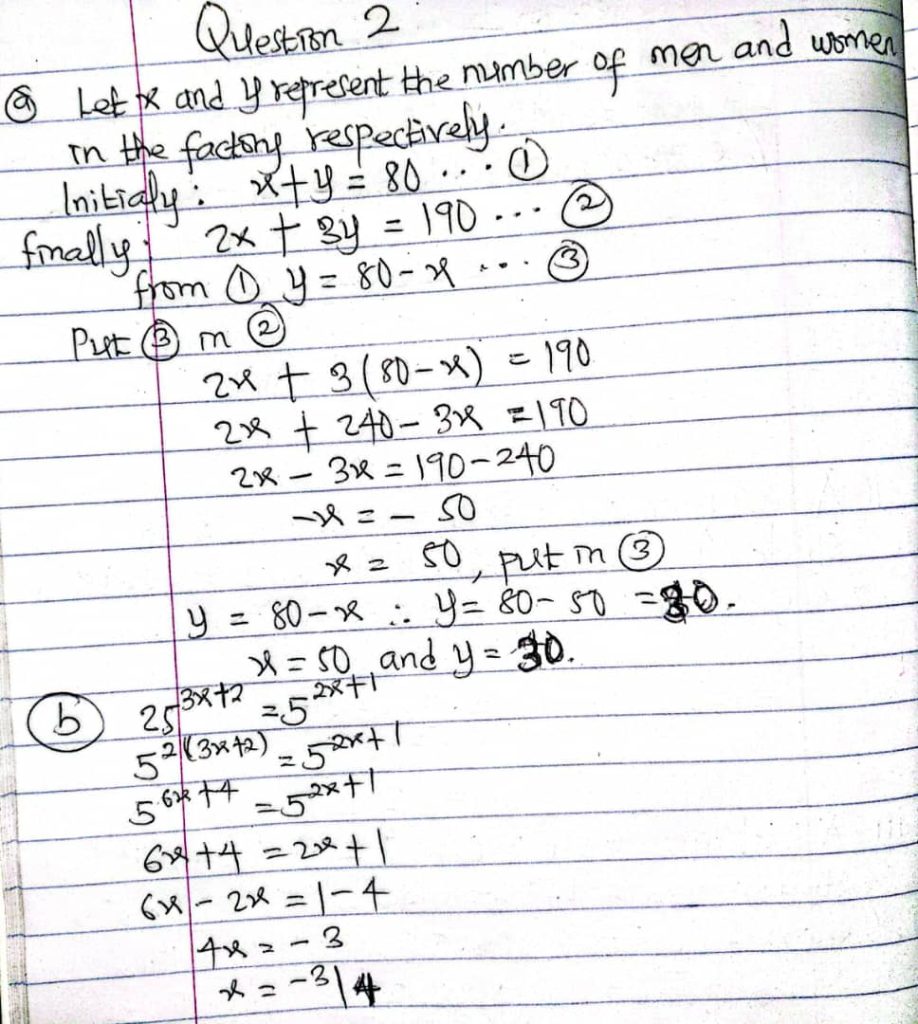 Question 2
ⓐ Let x and y represent the number of men and women
in the factory respectively.
Initially: x+y = 80 ... ①
finally: 2x + 3y = 190 ... ②
from ① y = 80-x ... ③
Put ③ in ②
2x + 3(80-x) = 190
2x + 240-3x = 190
2x - 3x = 190-240
-x = - 50
x = 50, put in ③
y = 80-x ∴ y= 80-50 =30.
x = 50 and y = 30.
ⓑ 25^{3x+2} = 5^{2x+1}
5^{2(3x+2)} = 5^{2x+1}
5^{6x+4} = 5^{2x+1}
6x+4 = 2x+1
6x - 2x = 1-4
4x = -3
x = -3/4